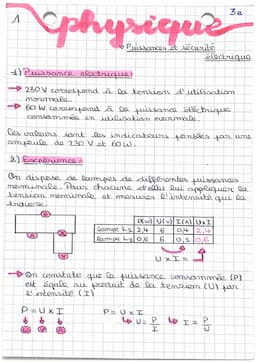 1
3e
physique
Puissances et sécurité
électrique
1) Puissance électrique:
→ 230V correspond à la tension d'utilisation
normale.
→ 60W correspond à la puissance électrique
consommée en utilisation normale.
Ces valeurs sont les indicateurs portées par une
ampoule de 230 V et 60W.
2) Expérience:
On dispose de lampes de différentes puissances
nominale. Pour chacune d'elle lui appliquer la
tension nominale et mesurer l'intensité qui la
traverse.
P(W) U(V) I(A) UxI
Lampe L1 2,4 6 0,4 2,4
Lampe L2 0,6 6 0,1 0,6
U x I =
→ On constate que la puissance consommée (P)
est égale au produit de la tension (U) par
l'intensité (I)
P = U x I
P = U x I
↳ U = P/I ↳ I = P/U
W V A